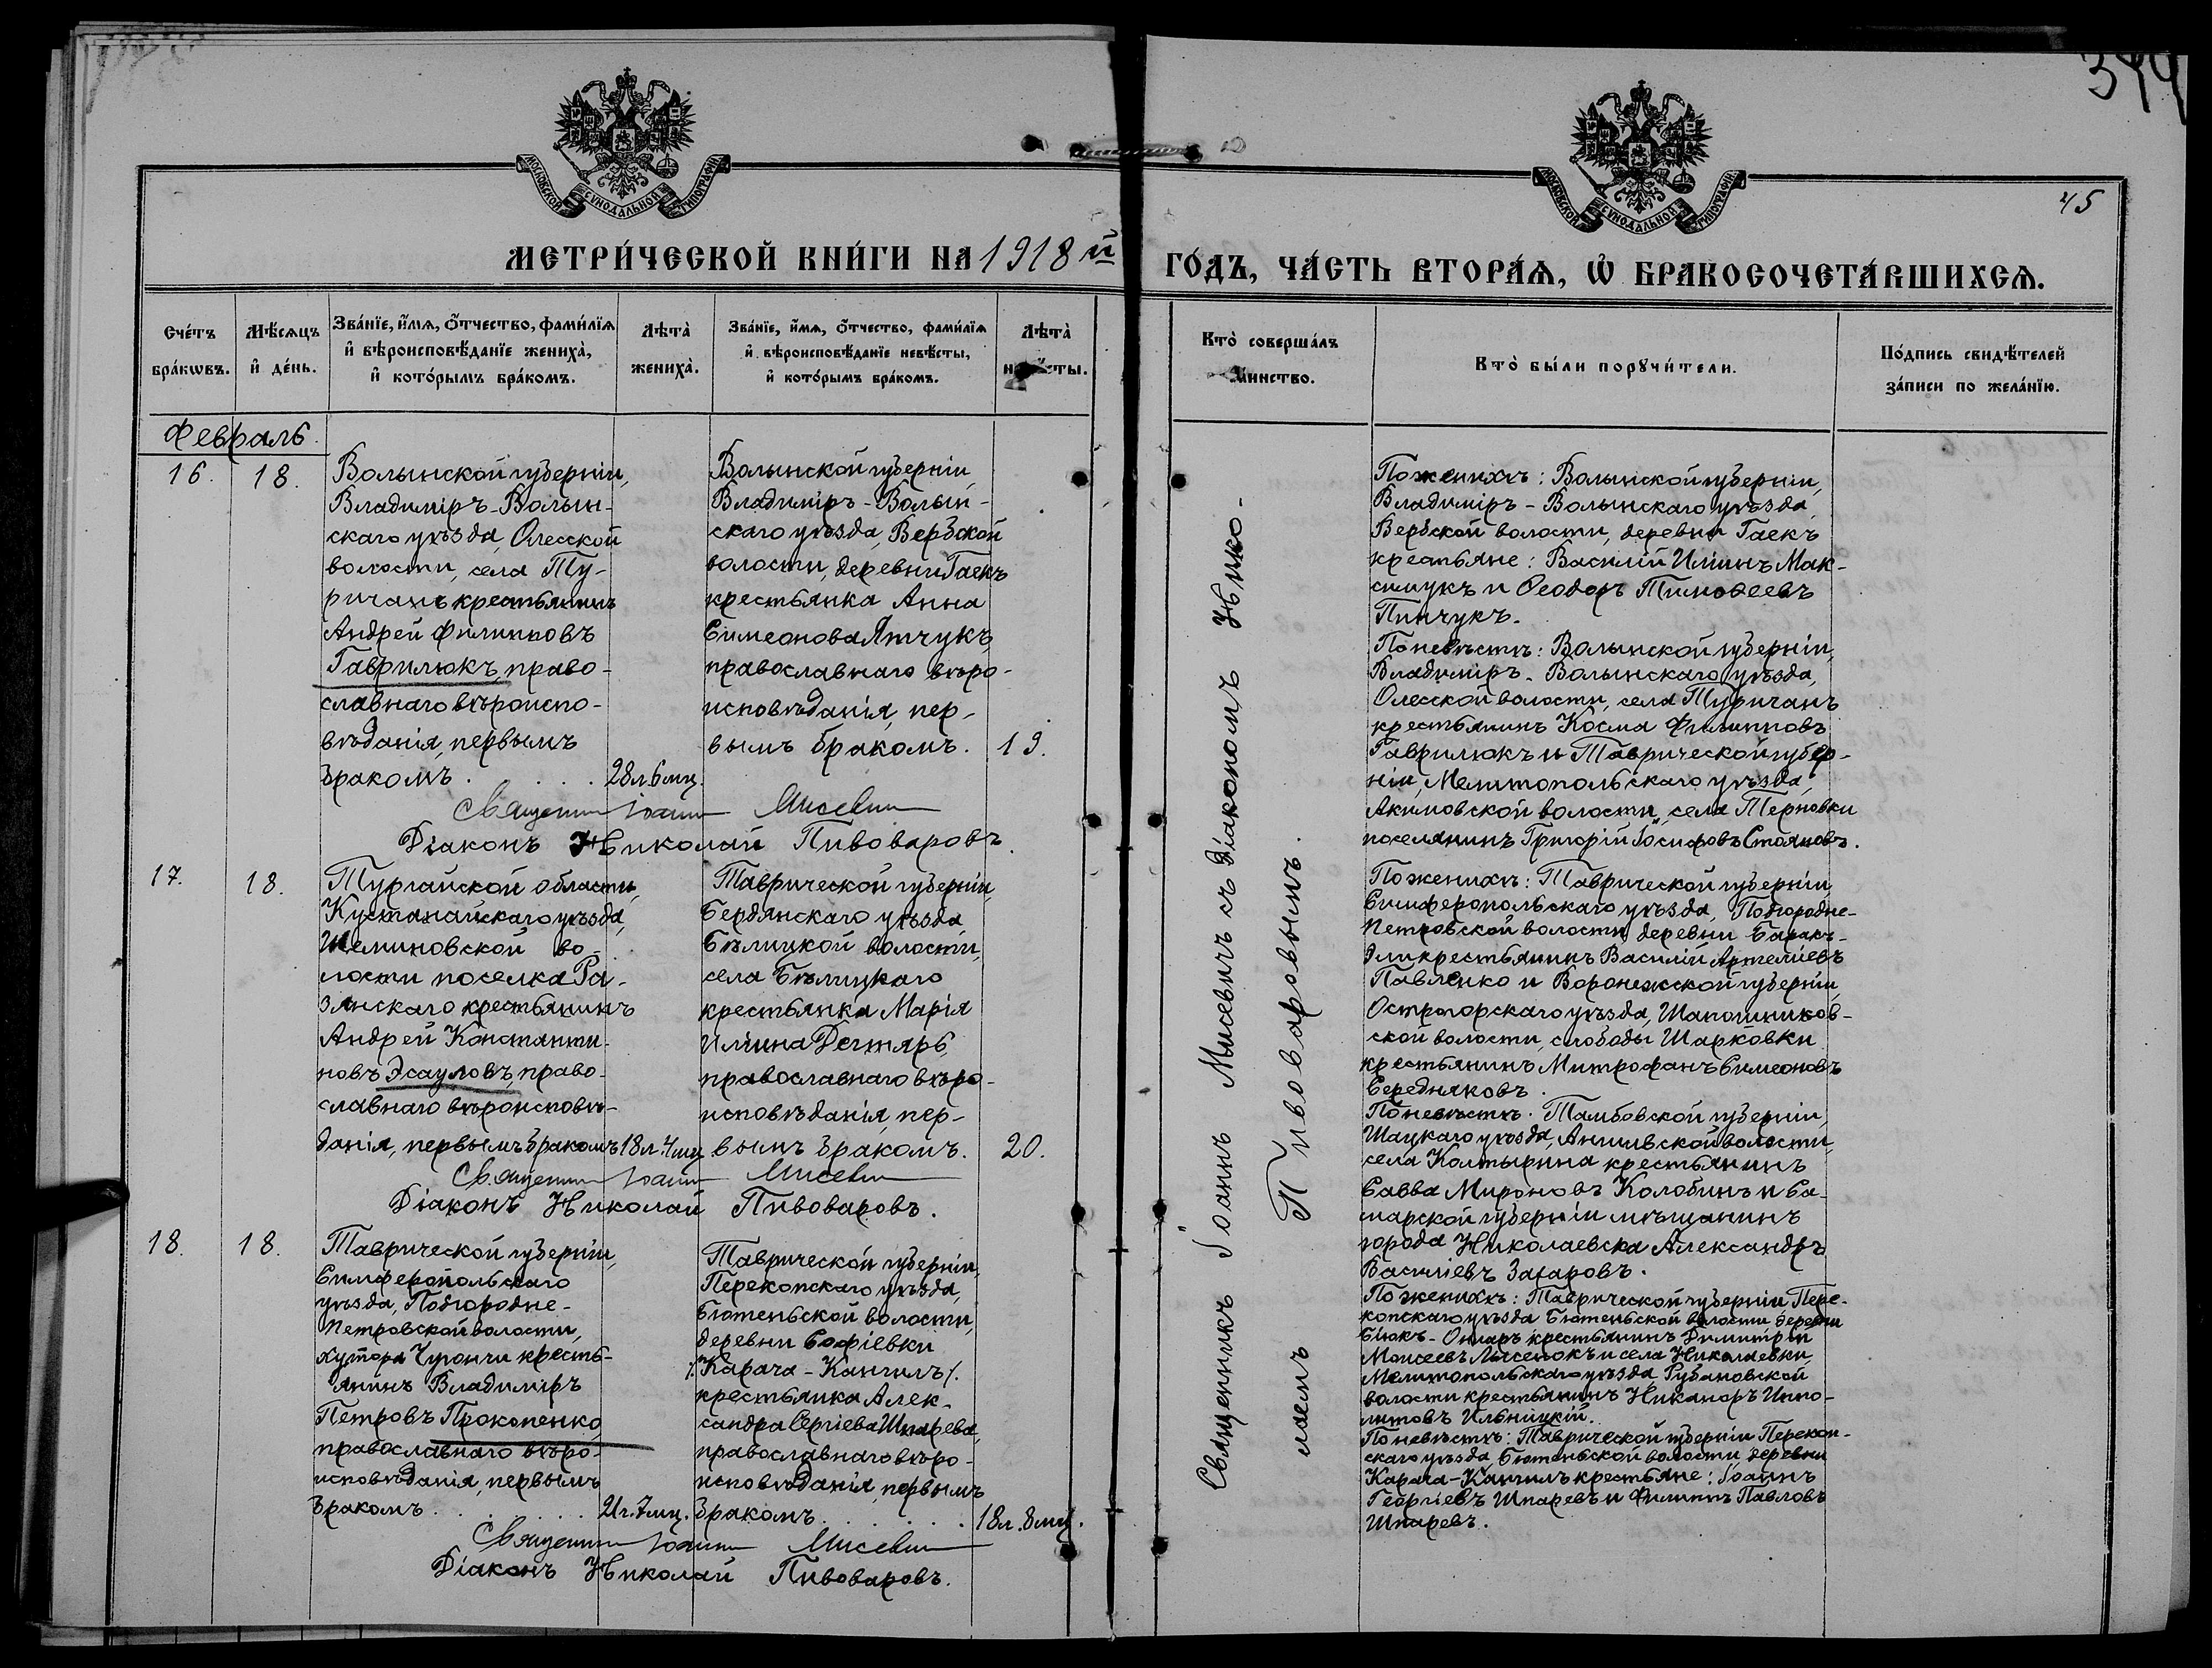 344
45
МОСКОВСКОЙ СѴНОДАЛЬНОЙ ТИПОГРАФІИ
МОСКОВСКОЙ СѴНОДАЛЬНОЙ ТИПОГРАФІИ
МЕТРИ́ЧЕСКОЙ КНИ́ГИ НА 1918 й ГО́ДЪ, ЧА́СТЬ ВТОРА́Ѧ, Ѿ БРАКОСОЧЕТА́ВШИХСѦ.
Сче́тъ бра́кѡвъ.
Мѣ́сѧцъ и҆ де́нь.
Зва́нїе, и҆́мѧ, ѻ҆́тчество, фами́лїѧ
и҆ вѣроисповѣ́данїе жениха̀,
и҆ кото́рымъ бра́комъ.
Лѣта̀ жениха̀.
Зва́нїе, и҆́мѧ, ѻ҆́тчество, фами́лїѧ
и҆ вѣроисповѣ́данїе невѣ́сты,
и҆ кото́рымъ бра́комъ.
Лѣта̀
Кто̀ соверша́лъ
Кто̀ бы́ли порꙋчи́тели.
По́дпись свидѣ́телей
за́писи по жела́нїю.
Февраль.
16.
18.
Волынской губерніи,
Владиміръ-Волын-
скаго уѣзда, Олесской
волости, села Ту-
ричанъ крестьянинъ
Андрей Филипповъ
Гаврилюкъ, право-
славнаго вѣроиспо-
вѣданія, первымъ
бракомъ.
28 л. 6 мц.
Волынской губерніи,
Владиміръ-Волын-
скаго уѣзда, Вербской
волости, деревни Гаекъ
крестьянка Анна
Симеонова Ятчукъ
православнаго вѣро-
исповѣданія, пер-
вымъ бракомъ.
19.
Священникъ Іоаннъ Мисевичъ
Діаконъ Николай Пивоваровъ.
Священникъ Іоаннъ Мисевичъ съ діакономъ Нико-
лаемъ Пивоваровымъ.
По женихѣ: Волынской губерніи,
Владиміръ-Волынскаго уѣзда,
Вербской волости, деревни Гаекъ
крестьяне: Василій Илiинъ Мак-
симукъ и Ѳеодоръ Тимоѳеевъ
Пинчукъ.
По невѣстѣ: Волынской губерніи,
Владиміръ-Волынскаго уѣзда,
Олесской волости, села Туричанъ
крестьянинъ Косма Филипповъ
Гаврилюкъ и Таврической губер-
ніи, Мелитопольскаго уѣзда,
Акимовской волости, села Терновки
поселянинъ Григорій Іосифовъ Стояновъ.
17.
18.
Тургайской области,
Кустанайскаго уѣзда,
Шеминовской во-
лости поселка Ря-
занскаго крестьянинъ
Андрей Константи-
новъ Эсауловъ, право-
славнаго вѣроисповѣ-
данія, первымъ бракомъ
18 л. 4 мц.
Таврической губерніи,
Бердянскаго уѣзда,
Бѣлицкой волости,
села Бѣлицкаго
крестьянка Марія
Илiина Дегтярь,
православнаго вѣро-
исповѣданія, пер-
вымъ бракомъ.
20.
Священникъ Іоаннъ Мисевичъ
Діаконъ Николай Пивоваровъ.
По женихѣ: Таврической губерніи,
Симферопольскаго уѣзда, Подгородне-
Петровской волости, деревни Баракъ-
Эли крестьянинъ Василій Артеміевъ
Павленко и Воронежской губерніи,
Острогорскаго уѣзда, Шапошников-
ской волости, слободы Шарковки
крестьянинъ Митрофанъ Симеоновъ
Середняковъ.
По невѣстѣ: Тамбовской губерніи,
Шацкаго уѣзда, волости,
села Колтырина крестьянинъ
Савва Мироновъ Колобинъ и Са-
марской губерніи мѣщанинъ
города Николаевска Александръ
Василіевъ Захаровъ.
18.
18.
Таврической губерніи,
Симферопольскаго
уѣзда, Подгородне-
Петровской волости,
хутора Чугончи кресть-
янинъ Владиміръ
Петровъ Прокопенко,
православнаго вѣро-
исповѣданія, первымъ
бракомъ.
21 г. 7 мц.
Таврической губерніи,
Перекопскаго уѣзда,
Бютеньской волости,
деревни Софіевки
/Карача-Кангилъ/.
крестьянка Алек-
сандра Сергіева Шпарева,
православнаго вѣро-
исповѣданія, первымъ
бракомъ.
18 л. 8 мц.
Священникъ Іоаннъ Мисевичъ
Діаконъ Николай Пивоваровъ.
По женихѣ: Таврической губерніи Пере-
копскаго уѣзда Бютеньской волости деревни
Біюкъ-Онларъ крестьянинъ Димитрій
Моисеевъ Лысенокъ и села Николаевки,
Мелитопольскаго уѣзда Рубановской
волости крестьянинъ Никаноръ Иппо-
литовъ Ильницкій.
По невѣстѣ: Таврической губерніи Перекоп-
скаго уѣзда, Бютеньской волости деревни
Карача-Кангилъ крестьяне: Іоаннъ
Георгіевъ Шпаревъ и Филиппъ Павловъ
Шпаревъ.